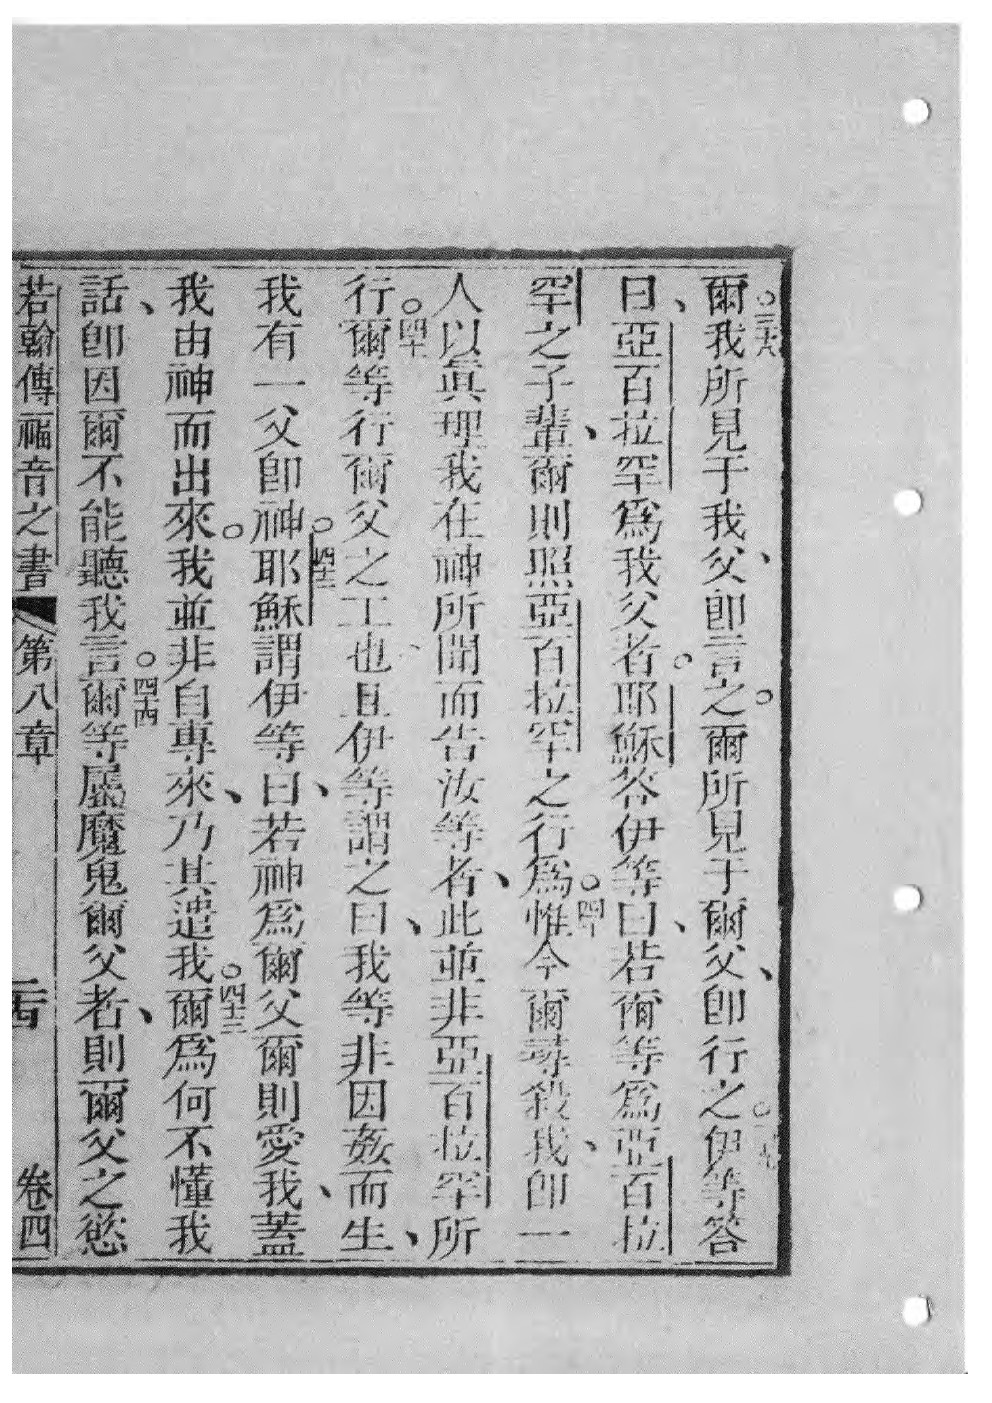 爾。三十八我所見于我父、卽言之。爾所見于爾父、卽行之。三十九伊等答
曰、亞百拉罕爲我父者。耶穌答伊等曰、若爾等爲亞百拉
罕之子輩、爾則照亞百拉罕之行爲。四十惟今爾尋殺我、卽一
人以眞理我在神所聞而告汝等者、此並非亞百拉罕所
行。四十一爾等行爾父之工也且伊等謂之曰、我等非因姦而生、
我有一父卽神。四十二耶穌謂伊等曰、若神爲爾父爾則愛我、蓋
我由神而出來。我並非自專來、乃其遣我。四十三爾爲何不懂我
話、卽因爾不能聽我言。四十四爾等屬魔鬼爾父者、則爾父之慾
若翰傳福音之書 第八章 二十四 卷四